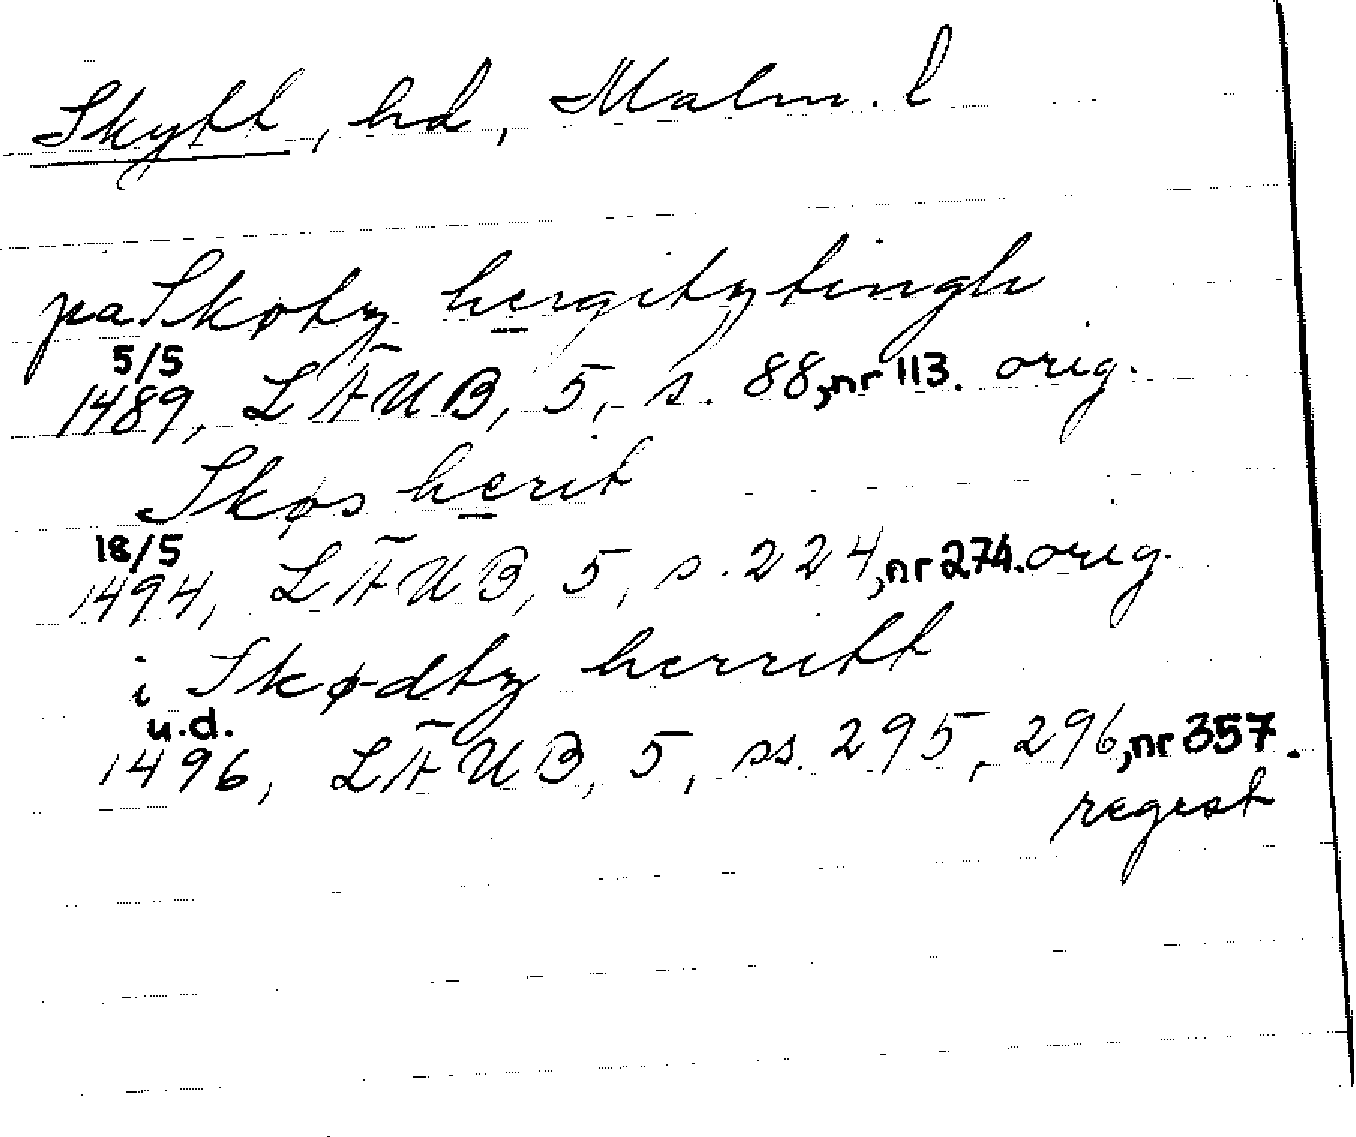 Skytt, hd, Malm. l
pa Skøtz hergitztingh
5/5
1489, LÄUB, 5, s. 88, nr 113. orig.
Skøs herit
18/5
1494, LÄUB, 5, s. 224, nr 274. orig.
i Skødtz herritt
u.d.
1496, LÄUB, 5, ss. 295, 296, nr 357.
regest